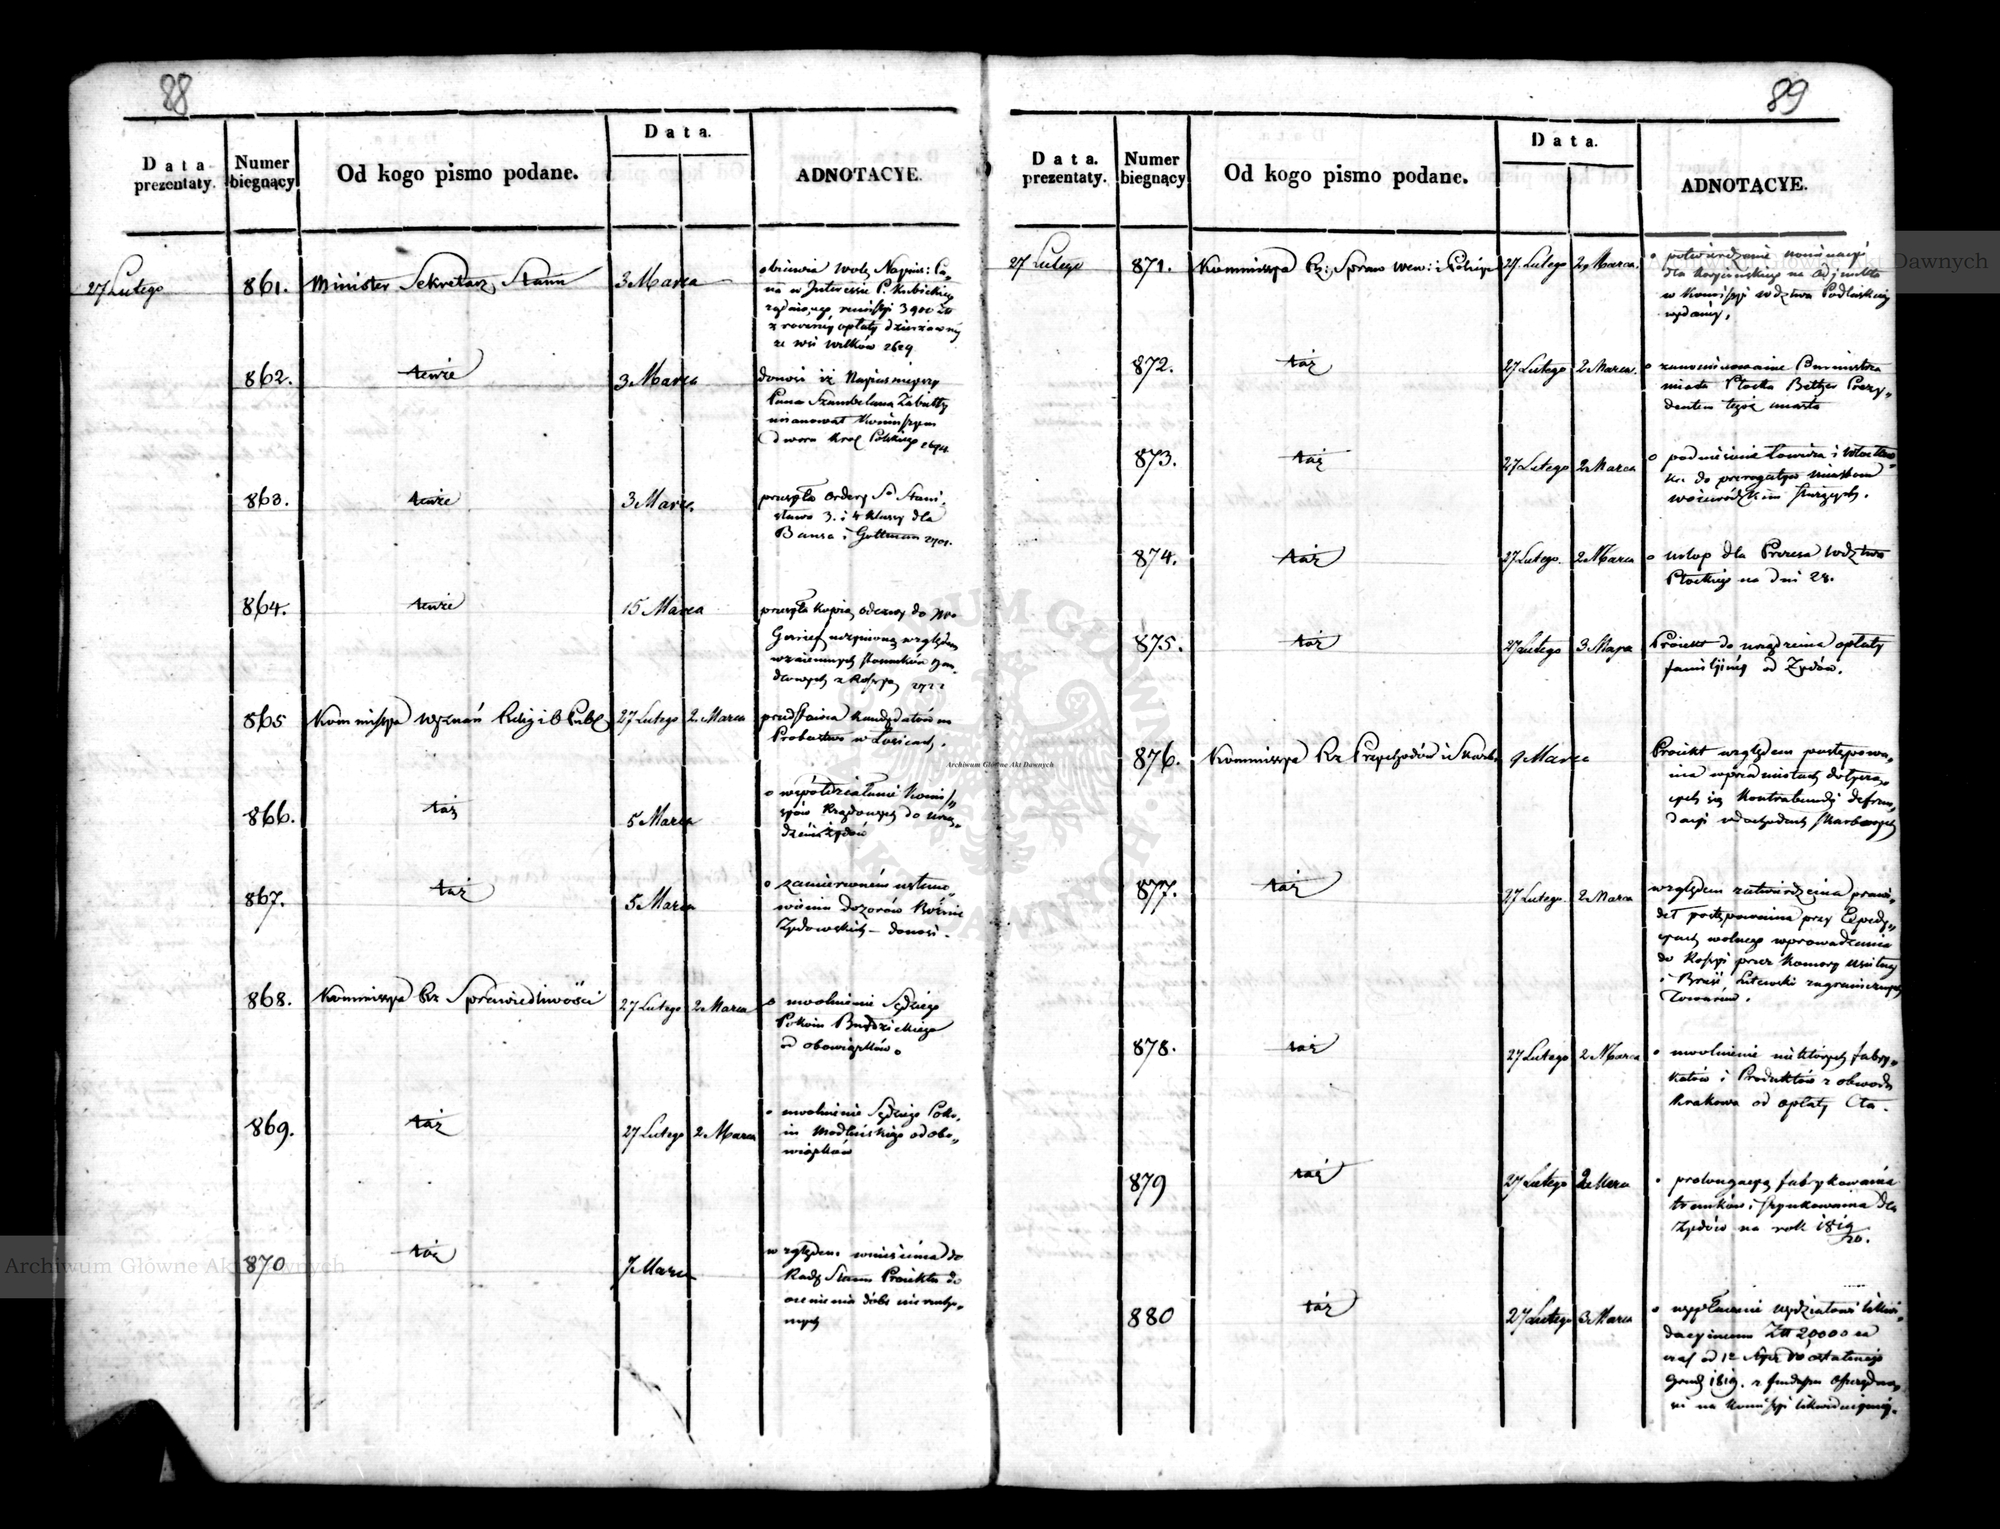 88
Data prezentaty.
Numer biegnący
Od kogo pismo podane.
Data.
ADNOTACYE.
27 Lutego
861.
Minister Sekretarz Stanu
3 Marca
objawia wolę Najias: Pa„
na w Interessie P. Kubickiego
remissyi 3900 Zł
z roczney opłaty dzierżawnéy
ze wsi Wilków 2629
862.
tenże
3 Marca
donosi iż Najiasnieyszy
Pana Szambelana Zabiełły
mianował
Dworu Król Polskiego
863.
tenże
3 Marca
przesyła ordery So Stani„
sława 3. i 4 klassy dla
i Gottman 2701.
864.
tenże
15 Marca
przesyła kopią odezwy do
uczynioną względem
wzaiemnych stosunków Han„
dlowych z Rossyą 2722
865
Kommissya Wyznań Relig i O Publ
27 Lutego
2 Marca
przedstawia kandydatów na
Probostwo w Łosicach.
866.
taż
5 Marca
o współdziałanie Komis„
syów Rządowych do urzą„
dzenia żydów
867.
taż
5 Marca
o zamierzoném ustano„
wieniu dozorów Bóżnic
Żydowskich – donosi.
868.
Kommissya Rz Sprawiedliwości
27 Lutego
2 Marca
o uwolnienie Sędziego
Pokoiu Budzickiego
od obowiązków.
869.
taż
27 Lutego
2 Marca
o uwolnienie Sędziego Poko„
iu Modlińskiego od obo„
wiązków
870
taż
7 Marca
względem wniesienia do
Rady Stanu Proiektu do
ocenienia dóbr nierucho„
mych
89
Data. prezentaty.
Numer biegnący
Od kogo pismo podane.
Data.
ADNOTACYE.
27 Lutego
871.
Kommissya Rz: Spraw Wew: i Policyi
27. Lutego
2 Marca.
o potwierdzenie nominacyi
dla na Adjunkta
w Komissyi Wdztwa Podlaskiéy
wydanéy.
872.
taż
27 Lutego
2 Marca.
o zanominowanie Burmistrza
miasta Płocka Betzer Prezy„
dentem tegoż miasta
873.
taż
27 Lutego
2 Marca
o podniesienie Łowicza i
do prerogatyw miastom
woiewódzkim służących.
874.
taż
27 Lutego.
2 Marca
o urlop dla Prezesa Wdztwa
Płockiego na dni 28.
875.
taż
27 Lutego
3 Maja
Proiekt do urządzenia opłaty
familijnéy od Żydów.
876.
Kommissya Rz Przychodów i Skarbu
9 Marca
Proiekt względem postępowa„
nia w przedmiotach dotyczą„
cych się Kontrabandy defrau„
dacyi w dochodach skarbowych
877.
taż
27 Lutego.
2 Marca
względem zatwierdzenia prawi„
deł postępowania przy Expedy„
cyach wolnego wprowadzenia
do Rossyi przez Komory
i Brześć Litewski zagranicznych
Towarów.
878.
taż
27 Lutego
2 Marca
o uwolnienie niektórych fabry„
katów i Produktów z obwodu
Krakowa od opłaty Cła.
879
taż
27 Lutego
2 Marca
o prolongacyą fabrykowania
trunków i szynkowania dla
Żydów na rok 1819/20.
880
taż
27 Lutego
3 Marca
o wypłacenie wydziałowi likwi„
dacyinemu Złt 20000 na
czas od 1o do ostatniego
Grud 1819. z funduszu
na Komissyi likwidacyinéy.
ARCHIWUM GŁÓWNE AKT DAWNYCH
Archiwum Główne Akt Dawnych
Archiwum Główne Akt Dawnych
Archiwum Główne Akt Dawnych